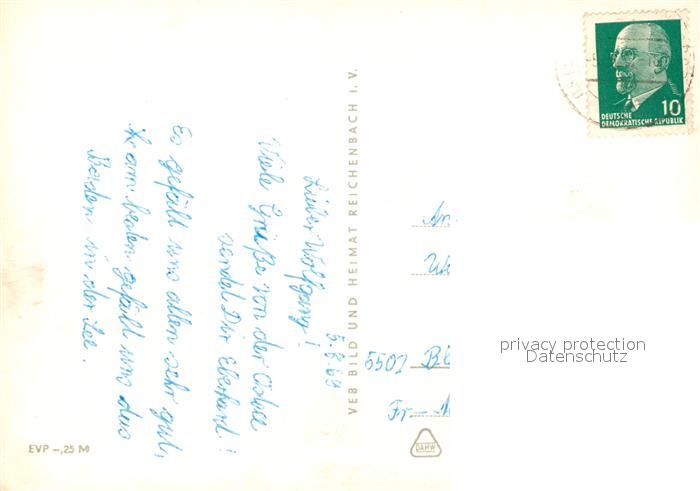 5.8.69
Lieber Wolfgang!
Viele Grüße von der Ostsee
sendet Dir Eberhard!
Es gefällt uns allen sehr gut,
am besten gefällt uns das
Baden in der See.
VEB BILD UND HEIMAT REICHENBACH I. V.
EVP -,25 M
10
DEUTSCHE
DEMOKRATISCHE REPUBLIK
An
5501
Fr
DAMW
privacy protection
Datenschutz